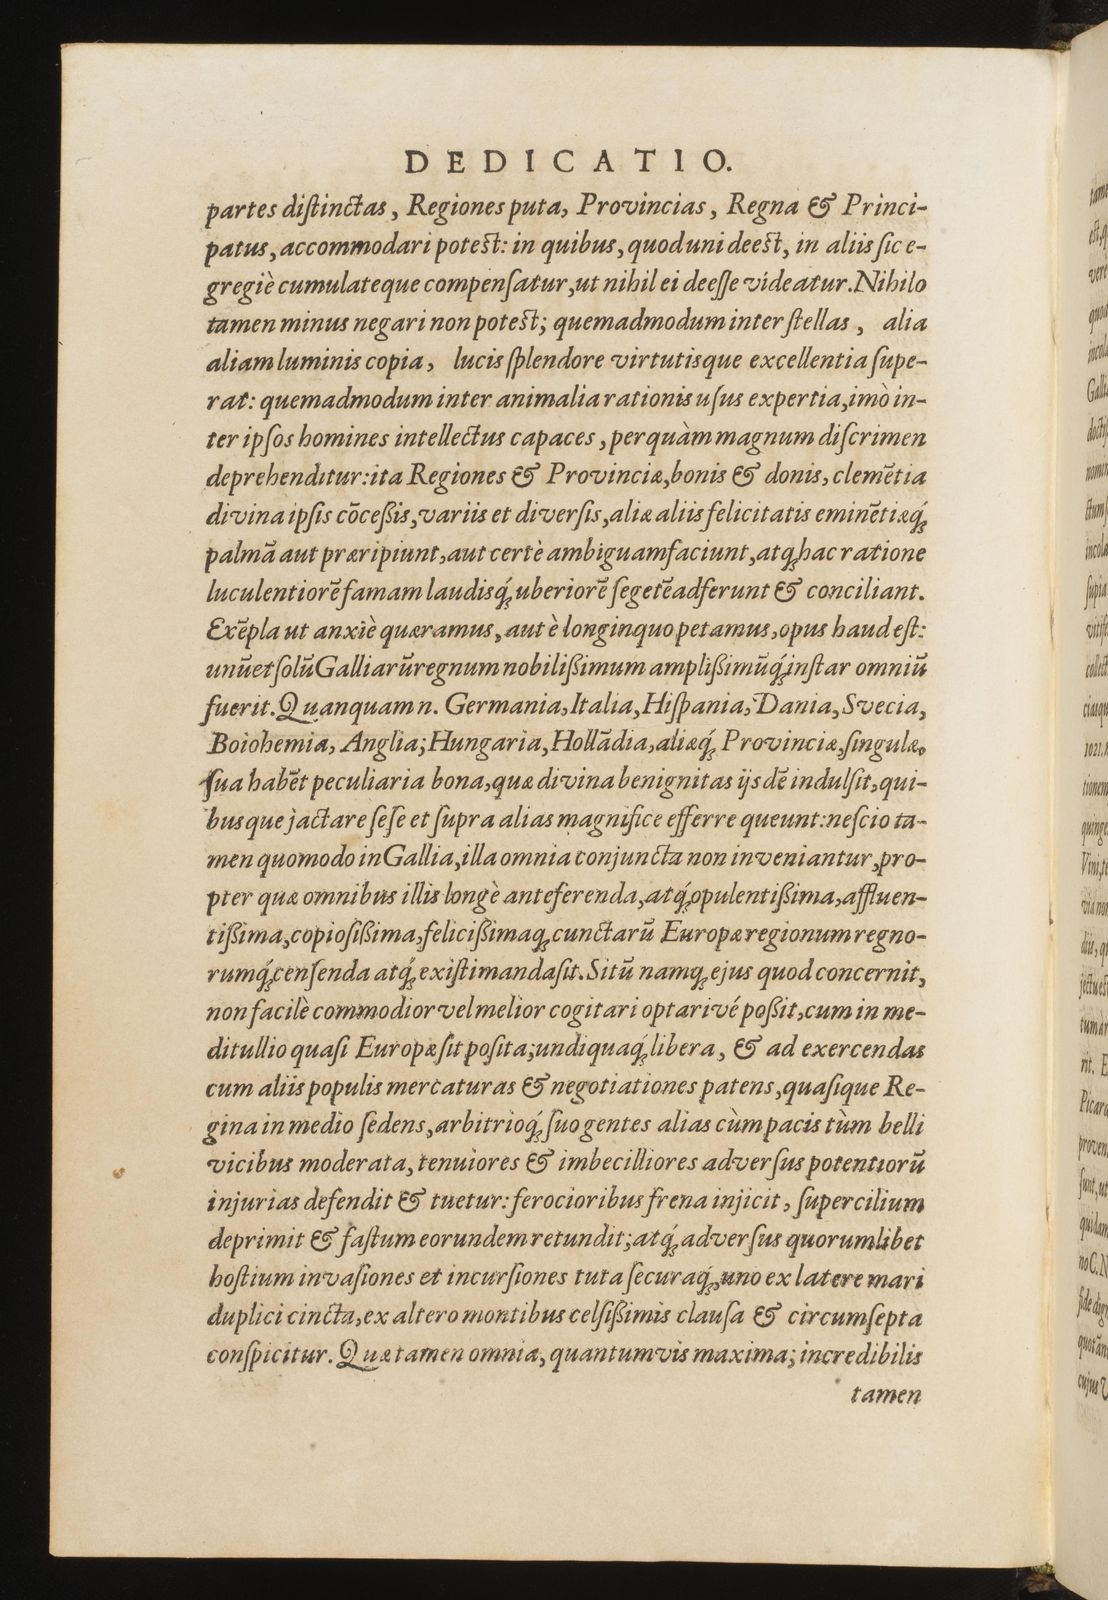 DEDICATIO.
partes diſtinctas, Regiones puta, Provincias, Regna & Princi-
patus, accommodari potest: in quibus, quod uni deest, in aliis ſic e-
gregiè cumulateque compenſatur, ut nihil ei deeſſe videatur. Nihilo
tamen minus negari non potest; quemadmodum inter ſtellas, alia
aliam luminis copia, lucis ſplendore virtutisque excellentia ſupe-
rat: quemadmodum inter animalia rationis uſus expertia, imò in-
ter ipſos homines intellectus capaces, per quàm magnum diſcrimen
deprehenditur: ita Regiones & Provinciæ, bonis & donis, clemẽtia
divina ipſis cõceßis, variis et diverſis, aliæ aliis felicitatis eminẽtiæq́;
palmã aut præripiunt, aut certè ambiguam faciunt, atq; hac ratione
luculentiorẽ famam laudisq́; uberiorẽ ſegetẽ adferunt & conciliant.
Exẽpla ut anxiè quæramus, aut è longinquo petamus, opus haud eſt:
unũ et ſolũ Galliarũ regnum nobilißimum amplißimũq́; inſtar omniũ
fuerit. Quanquam n. Germania, Italia, Hiſpania, Dania, Svecia,
Boiohemia, Anglia; Hungaria, Hollãdia, aliæq́; Provinciæ, ſingulæ,
ſua habẽt peculiaria bona, quæ divina benignitas ijs dẽ indulſit, qui-
busque jactare ſeſe et ſupra alias magnifice efferre queunt: neſcio ta-
men quomodo in Gallia, illa omnia conjuncta non inveniantur, pro-
pter quæ omnibus illis longè anteferenda, atq́; opulentißima, affluen-
tißima, copioſißima, felicißimaq; cunctarũ Europæ regionum regno-
rumq́; cenſenda atq́; exiſtimanda ſit. Sitũ namq; ejus quod concernit,
non facilè commodior vel melior cogitari optarivé poßit, cum in me-
ditullio quaſi Europæ ſit poſita; undiquaq; libera, & ad exercendas
cum aliis populis mercaturas & negotiationes patens, quaſique Re-
gina in medio ſedens, arbitrioq́; ſuo gentes alias cùm pacis tùm belli
vicibus moderata, tenuiores & imbecilliores adverſus potentiorũ
injurias defendit & tuetur: ferocioribus frena injicit, ſupercilium
deprimit & faſtum eorundem retundit; atq́; adverſus quorumlibet
hoſtium invaſiones et incurſiones tuta ſecuraq́;, uno ex latere mari
duplici cincta, ex altero montibus celſißimis clauſa & circumſepta
conſpicitur. Quæ tamen omnia, quantumvis maxima; incredibilis
tamen